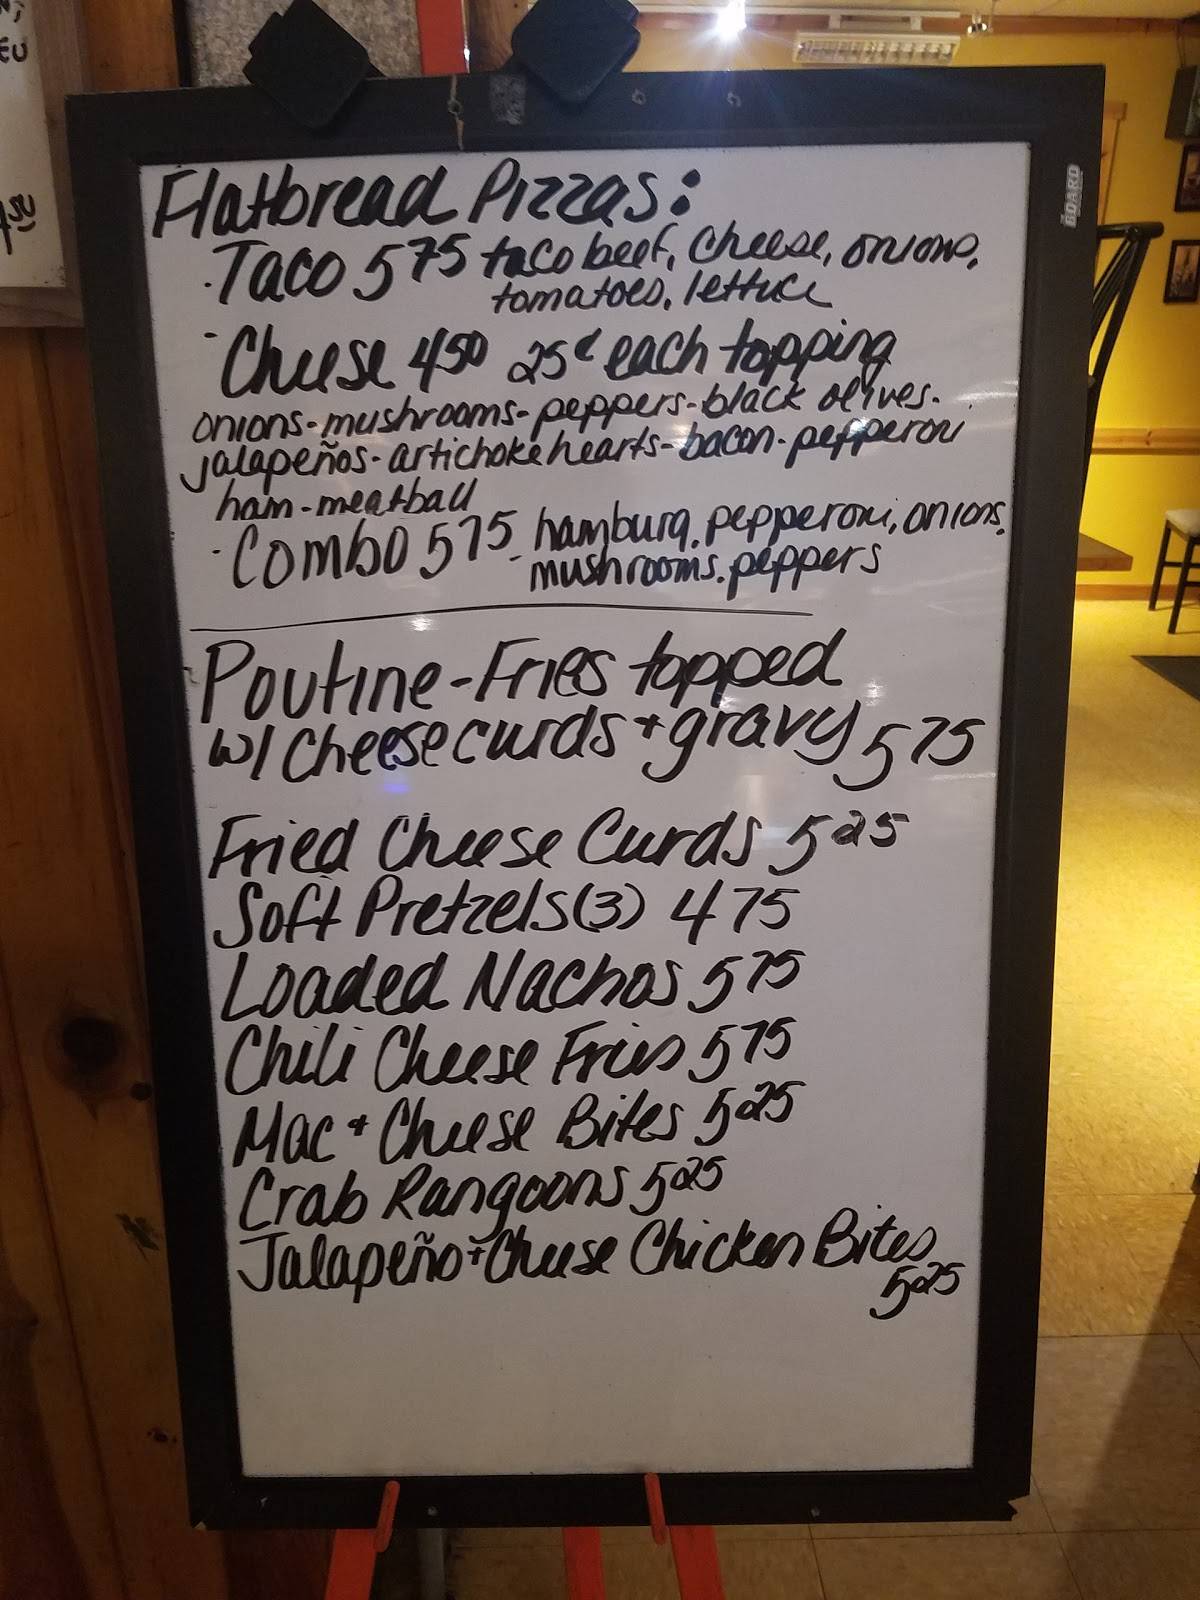 Flatbread Pizzas:
· Taco 5 75 taco beef, cheese, onions,
tomatoes, lettuce
- Cheese 4 50 25¢ each topping
onions - mushrooms - peppers - black olives.
jalapeños - artichoke hearts - bacon - pepperoni
ham - meatball
· Combo 5 75 - hamburg, pepperoni, onions,
mushrooms, peppers
Poutine - Fries topped
w/ cheese curds + gravy 5 75
Fried Cheese Curds 5 25
Soft Pretzels (3) 4 75
Loaded Nachos 5 75
Chili Cheese Fries 5 75
Mac + Cheese Bites 5 25
Crab Rangoons 5 25
Jalapeño + Cheese Chicken Bites
5 25
BOARD